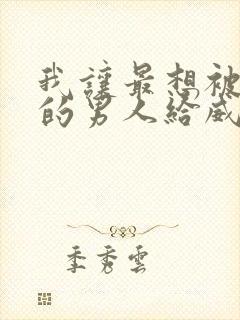 我讓最想被
的男人給威
季秀雲